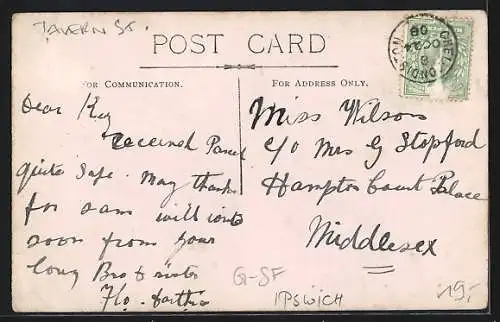 TAVERN St.
POST CARD
FOR COMMUNICATION.
FOR ADDRESS ONLY.
CHELMONDISTON
OC 24
08
Dear Key
received Parcel
quite safe. Many thanks
for same will write
soon from your
long Bro & sister
Flo.
Miss Wilson
c/o Mrs G Stopford
Hampton Court Palace
Middlesex
G-SF
IPSWICH
19,-